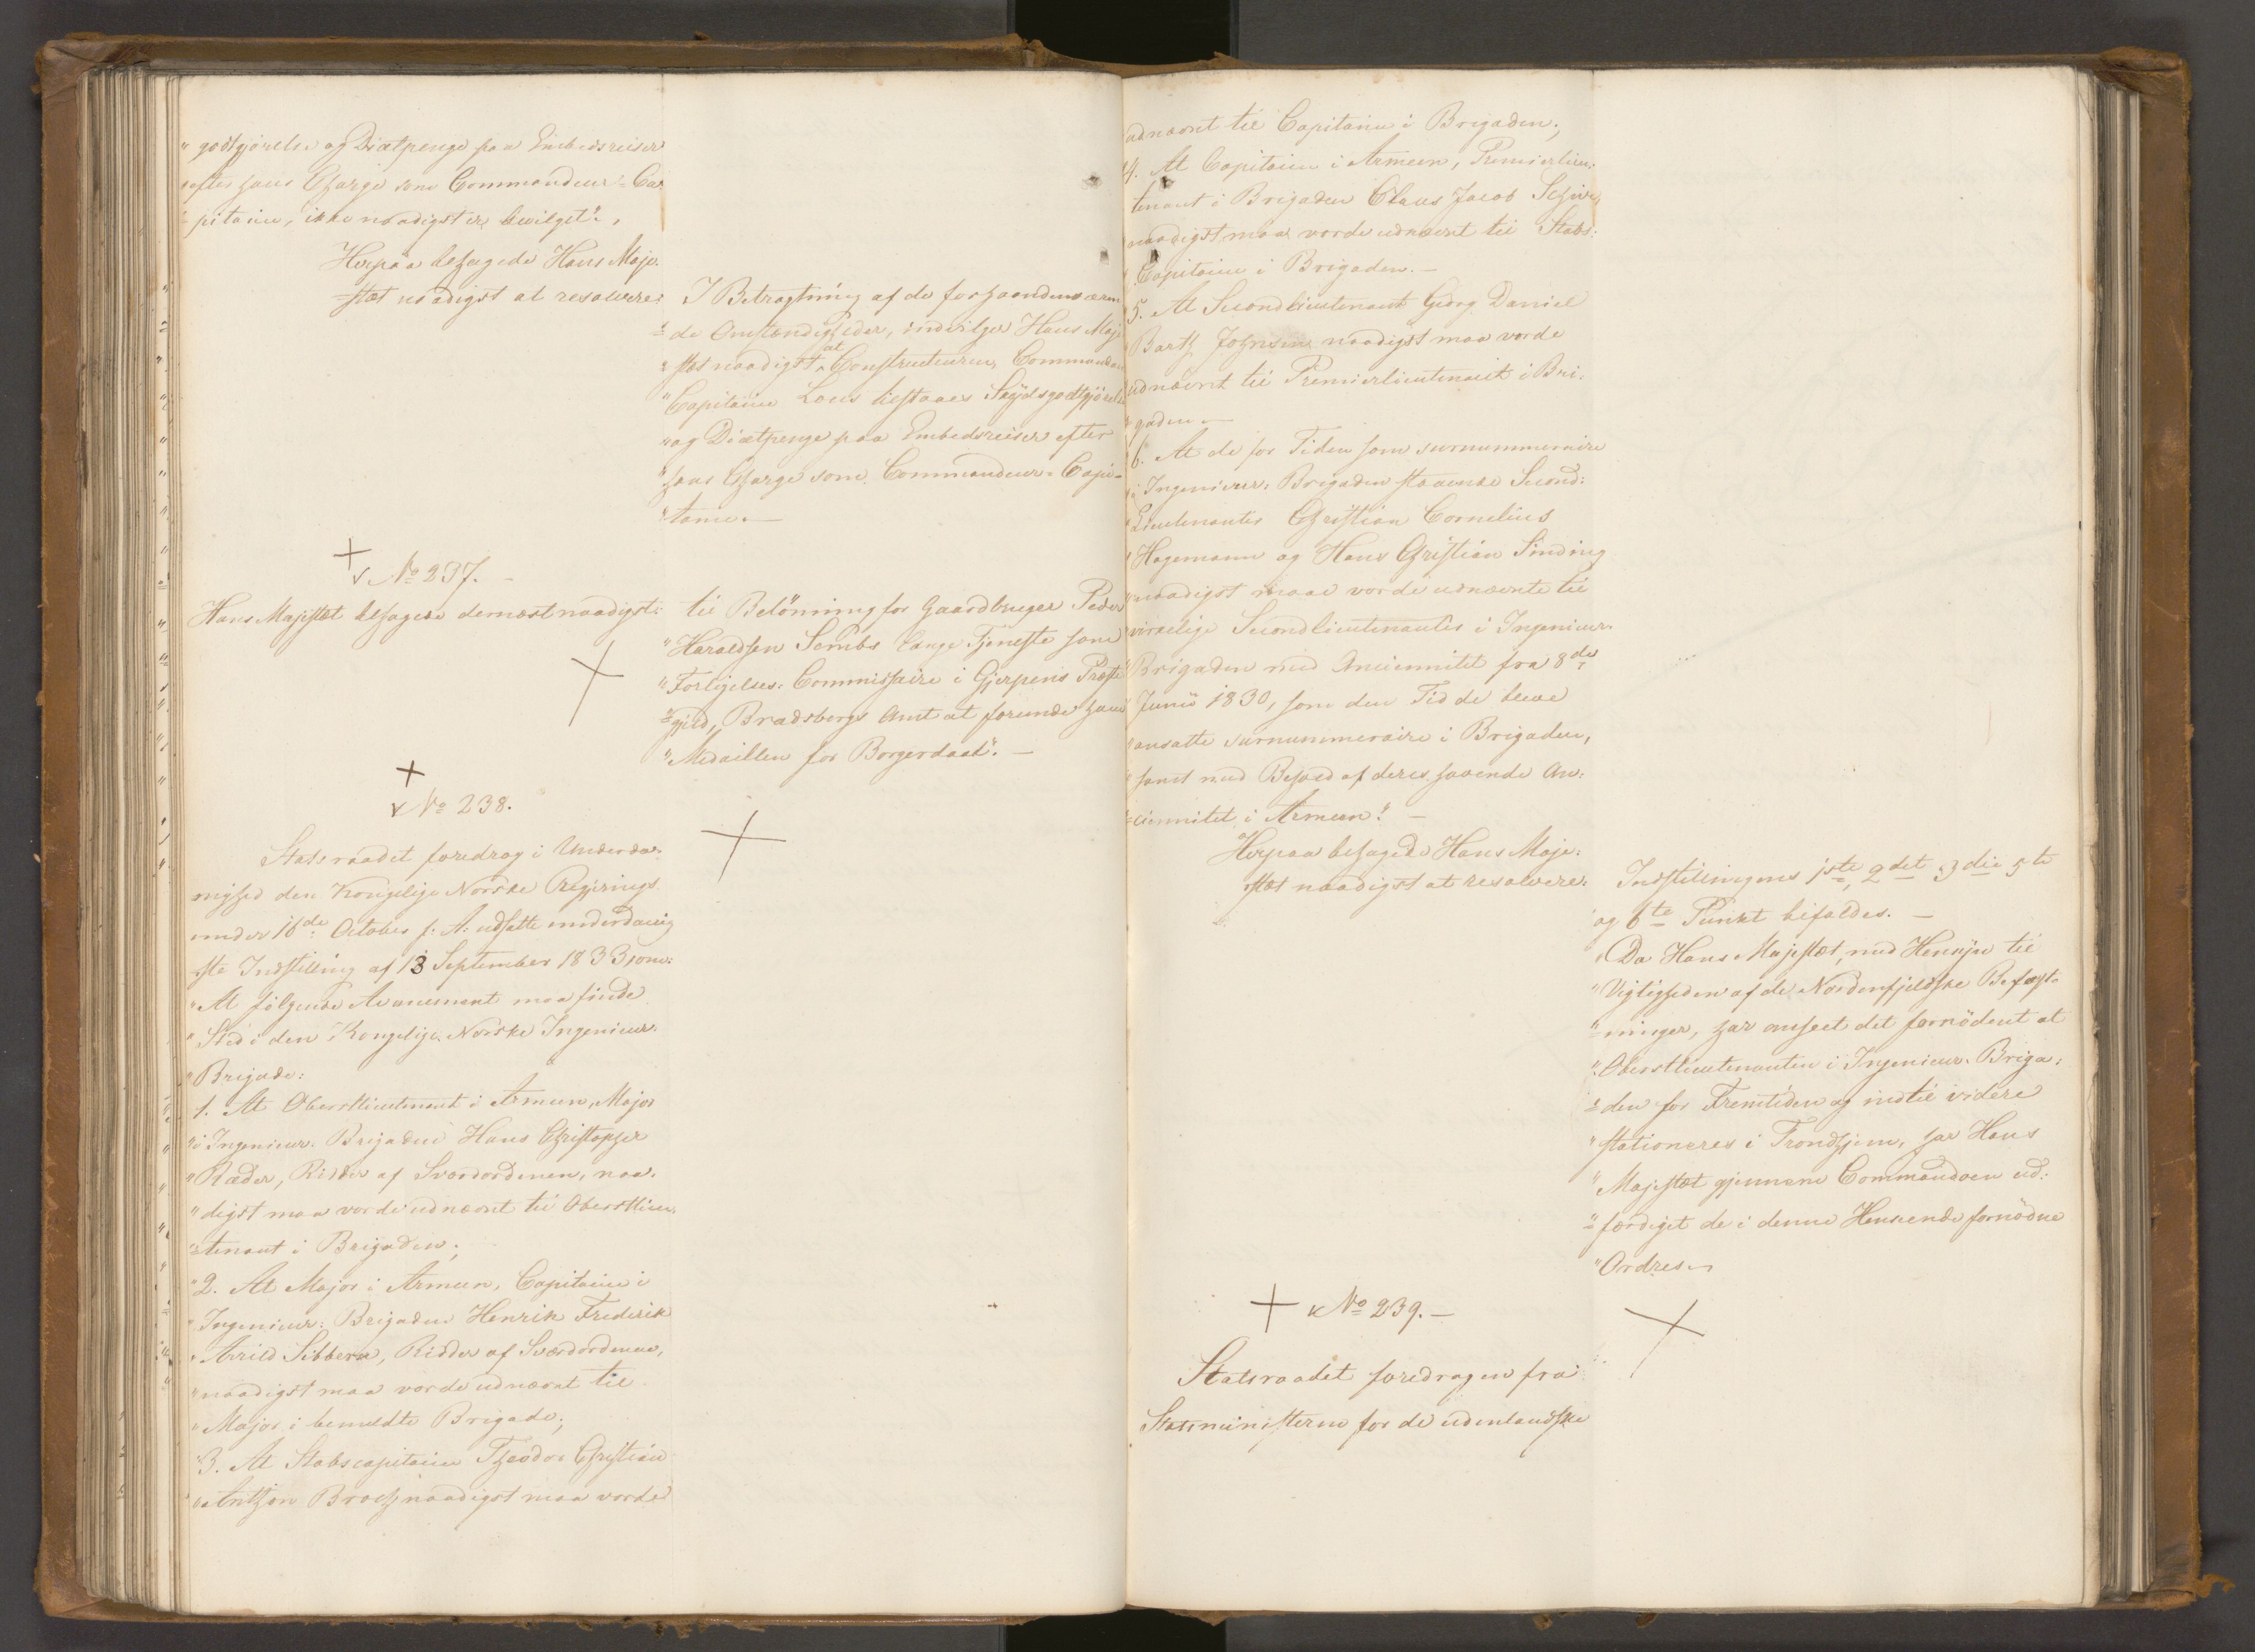 "godtgjørelse og Diætpenge paa Embedsreiser
"efter hans Charge som Commandeur-Ca-
"pitaine, ikke naadigst er bevilget".
Herpaa behagede Hans Maje-
stæt naadigst at resolvere:
I Betragtning af de forhaandenværen
"de Omstændigheder, indvilger Hans Maje
"stæt naadigst, at Constructeuren, Commandeur
"Capitaine Lous tilstaaes Skydsgodtgjørelse
"og Diætpenge paa Embedsreiser efter
"hans Charge som Commandeur-Capi-
"taine.—
No 237.
Hans Majestæt behagede dernæst naadigst:
til Belønning for Gaardbruger Peder
"Haraldsen Sembs lange Tjeneste som
"Forligelses-Commissaire i Gjerpens Præste
"gjeld, Bradsbergs Amt at forunde ham
"Medaillen for Borgerdaad".—
No 238.
Statsraadet foredrog i Underda-
nighed den Kongelige Norske Regjerings
under 16de October f. A. udsatte underdanig
ste Indstilling af 13 September 1833, om:
"At følgende Avancement maa finde
"Sted i den Kongelige Norske Ingenieur-
"Brigade:
1. At Oberstlieutenant i Armeen, Major
"i Ingenieur-Brigaden Hans Christopher
"Ræder, Ridder af Sværdordenen, naa-
"digst maa vorde udnævnt til Oberstlieu-
"tenant i Brigaden;
"2. At Major i Armeen, Capitaine i
"Ingenieur-Brigaden Henrik Frederik
"Arild Sibbern, Ridder af Sværdordenen,
"naadigst maa vorde udnævnt til
"Major i bemeldte Brigade;
"3. At Stabscapitaine Theodor Christian
"Anthon Broch naadigst maa vorde
udnævnt til Capitaine i Brigaden;
"4. At Capitaine i Armeen, Premierlieu-
tenant i Brigaden Claus Jacob Schive
naadigst maa vorde udnævnt til Stabs-
"Capitaine i Brigaden.—
5. At Secondlieutenant Georg Daniel
"Barth Johnson naadigst maa vorde
udnævnt til Premierlieutenant i Bri-
"gaden.—
6. At de for Tiden som surnummeraire
"i Ingenieur-Brigaden staaende Second-
"Lieutenanter Christian Cornelius
"Hagemann og Hans Christian Sinding
"naadigst maae vorde udnævnte til
"virkelige Secondlieutenanter i Ingenieur-
"Brigaden med Anciennitet fra 8de
"Junii 1830, som den Tid de bleve
"ansatte surnummeraire i Brigaden,
"samt med Behold af deres havende An-
"ciennitet i Armeen".—
Herpaa behagede Hans Maje-
stæt naadigst at resolvere:
Indstillingens 1ste, 2det 3die 5te
og 6te Punkt bifaldes.—
"Da Hans Majestæt, med Hensyn til
"Vigtigheden af de Nordenfjeldske Befæst-
"ninger, har anseet det fornødent at
"Oberstlieutenanten i Ingenieur-Briga-
"den for Fremtiden og indtil videre
"stationeres i Trondhjem, har Hans
"Majestæt gjennem Commandoen ud-
"færdiget de i denne Henseende fornødne
"Ordres.—
No 239.—
Statsraadet foredrog en fra
Statsministeren for de udenlandske